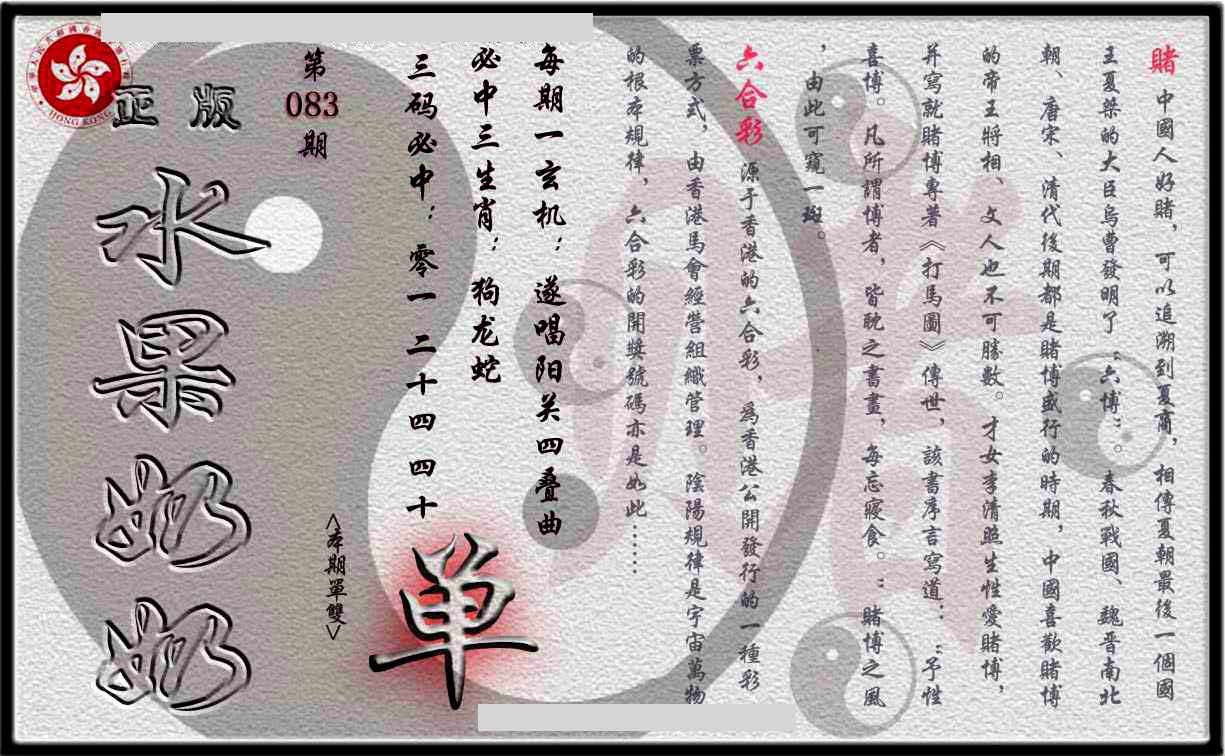 賭 中國人好賭，可以追溯到夏商，相傳夏朝最後一個國
王夏桀的大臣烏曹發明了“六博”。春秋戰國、魏晋南北
朝、唐宋、清代後期都是賭博盛行的時期，中國喜歡賭博
的帝王將相、文人也不可勝數。才女李清照生性愛賭博，
并寫就賭博專著《打馬圖》傳世，該書序言寫道：“予性
喜博。凡所謂博者，皆耽之書晝，每忘寢食。”賭博之風
，由此可窺一斑。
六合彩 源于香港的六合彩，為香港公開發行的一種彩
票方式，由香港馬會經營組織管理。陰陽規律是宇宙萬物
的根本規律，六合彩的開獎號碼亦是如此……
每期一玄机：遂唱阳关四叠曲
必中三生肖：狗龙蛇
三码必中：零一二十四四十
单
<本期單雙>
第
083
期
正版
水果奶奶
HONG KONG